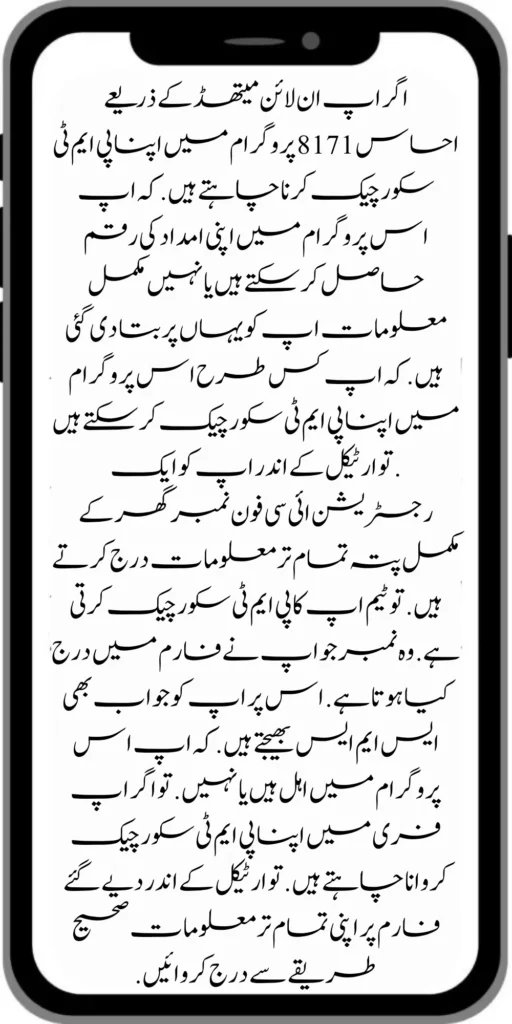 اگر اپ ان لائن میتھڈ کے ذریعے
احساس 8171 پروگرام میں اپنا پی ایم ٹی
سکور چیک کرنا چاہتے ہیں. کہ اپ
اس پروگرام میں اپنی امداد کی رقم
حاصل کر سکتے ہیں یا نہیں مکمل
معلومات اپ کو یہاں پر بتا دی گئی
ہیں. کہ اپ کس طرح اس پروگرام
میں اپنا پی ایم ٹی سکور چیک کر سکتے ہیں
. تو ارٹیکل کے اندر اپ کو ایک
رجسٹریشن ائی سی فون نمبر گھر کے
مکمل پتہ تمام تر معلومات درج کرتے
ہیں. تو ٹیم اپ کا پی ایم ٹی سکور چیک کرتی
ہے. وہ نمبر جو اپ نے فارم میں درج
کیا ہوتا ہے. اس پر اپ کو جواب بھی
ایس ایم ایس بھیجتے ہیں. کہ اپ اس
پروگرام میں اہل ہیں یا نہیں. تو اگر اپ
فری میں اپنا پی ایم ٹی سکور چیک
کروانا چاہتے ہیں. تو ارٹیکل کے اندر دیے گئے
فارم پر اپنی تمام تر معلومات صحیح
طریقے سے درج کروائیں.